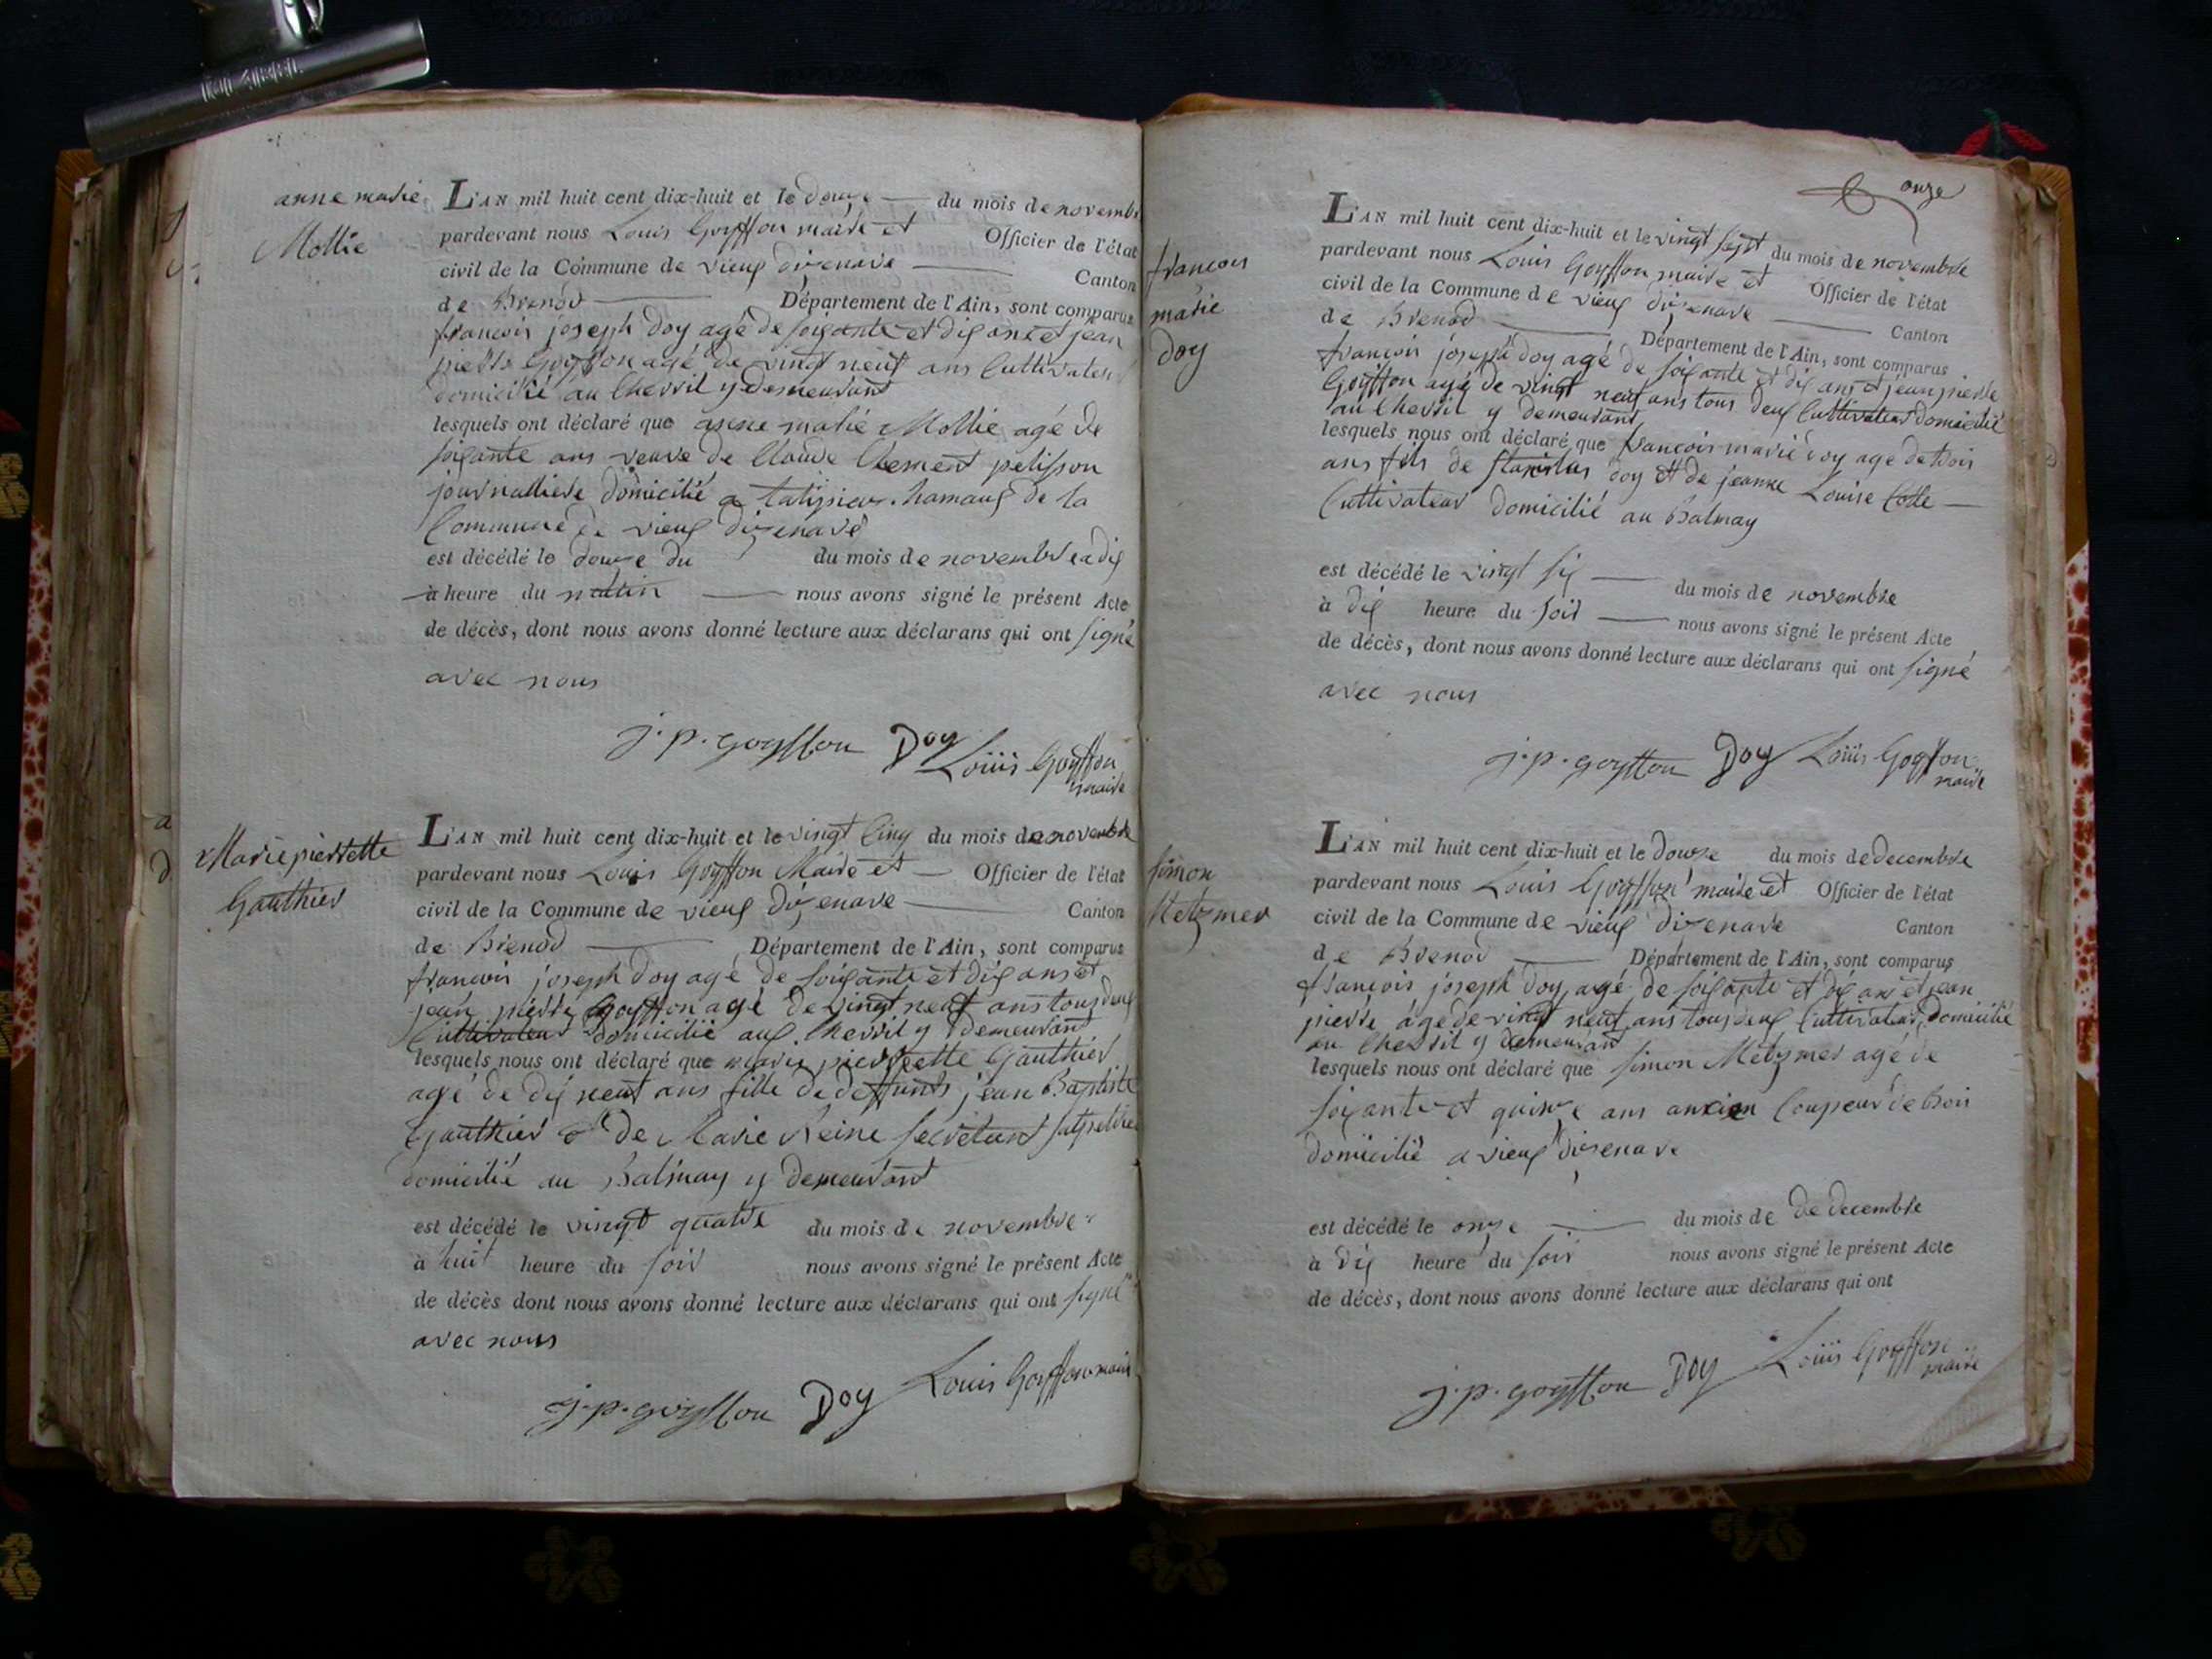 anne marie
Mollie
L'AN mil huit cent dix-huit et le douze du mois de novembr
pardevant nous Louis Goyffon maire et Officier de l'état
civil de la Commune de vieux dizenave Canton
de Brenod Département de l'Ain, sont comparus
francois joseph Doy agé de soixante et dix ans et jean
pierre Goyffon agé de vingt neuf ans Cultivateu
domicilié au Chevril y demeurant
lesquels ont déclaré que anne marie Mollie agé de
soixante ans veuve de Claude Clement pelisson
journalliere domicilié a hamaux de la
Commune de vieux dizenave
est décédé le douze du du mois de novembre a dix
à heure du matin nous avons signé le présent Acte
de décès, dont nous avons donné lecture aux déclarans qui ont signé
avec nous
j. p. goyffon Doy
Louis Goyffon
maire
Marie pierrette
Gauthier
L'AN mil huit cent dix-huit et le vingt Cinq du mois de novembre
pardevant nous Louis Goyffon Maire et Officier de l'état
civil de la Commune de vieux dizenave Canton
de Brenod Département de l'Ain, sont comparus
francois joseph Doy agé de soixante et dix ans et
jean pierre Goyffon agé de vingt neuf ans tous deux
Cultivateur domicilié aux Chevril y demeurant
lesquels nous ont déclaré que marie pierrette Gauthier
agé de dix neuf ans fille de deffunts jean Baptiste
Gauthier & De Marie Reine Secretant
domicilié au Balmay y demeurant
est décédé le vingt quatre du mois de novembre
à huit heure du soir nous avons signé le présent Acte
de décès dont nous avons donné lecture aux déclarans qui ont signé
avec nous
j. p. goyffon Doy Louis Goyffon maire
onze
francois
marie
Doy
L'AN mil huit cent dix-huit et le vingt sept du mois de novembre
pardevant nous Louis Goyffon maire et Officier de l'état
civil de la Commune de vieux dizenave Canton
de Brenod Département de l'Ain, sont comparus
francois joseph Doy agé de soixante et dix ans et jean pierre
Goyffon agé de vingt neuf ans tous deux Cultivateur domicilié
au Chevril y demeurant
lesquels nous ont déclaré que francois marie Doy agé de trois
ans fils de Stanislas Doy et de jeanne Louise
Cultivateur domicilié au Balmay
est décédé le vingt six du mois de novembre
à dix heure du soir nous avons signé le présent Acte
de décès, dont nous avons donné lecture aux déclarans qui ont signé
avec nous
j. p. goyffon Doy Louis Goyffon
maire
simon
Metzmer
L'AN mil huit cent dix-huit et le douze du mois de decembre
pardevant nous Louis Goyffon maire et Officier de l'état
civil de la Commune de vieux dizenave Canton
de Brenod Département de l'Ain, sont comparus
francois joseph Doy agé de soixante et dix ans et jean
pierre agé de vingt neuf ans tous deux Cultivateur domicilié
au Chevril y demeurant
lesquels nous ont déclaré que simon Metzmer agé de
soixante et quinze ans ancien Coupeur de bois
domicilié a vieux dizenave
est décédé le onze du mois de de decembre
à dix heure du soir nous avons signé le présent Acte
de décès, dont nous avons donné lecture aux déclarans qui ont
j. p. goyffon Doy Louis Goyffon
maire